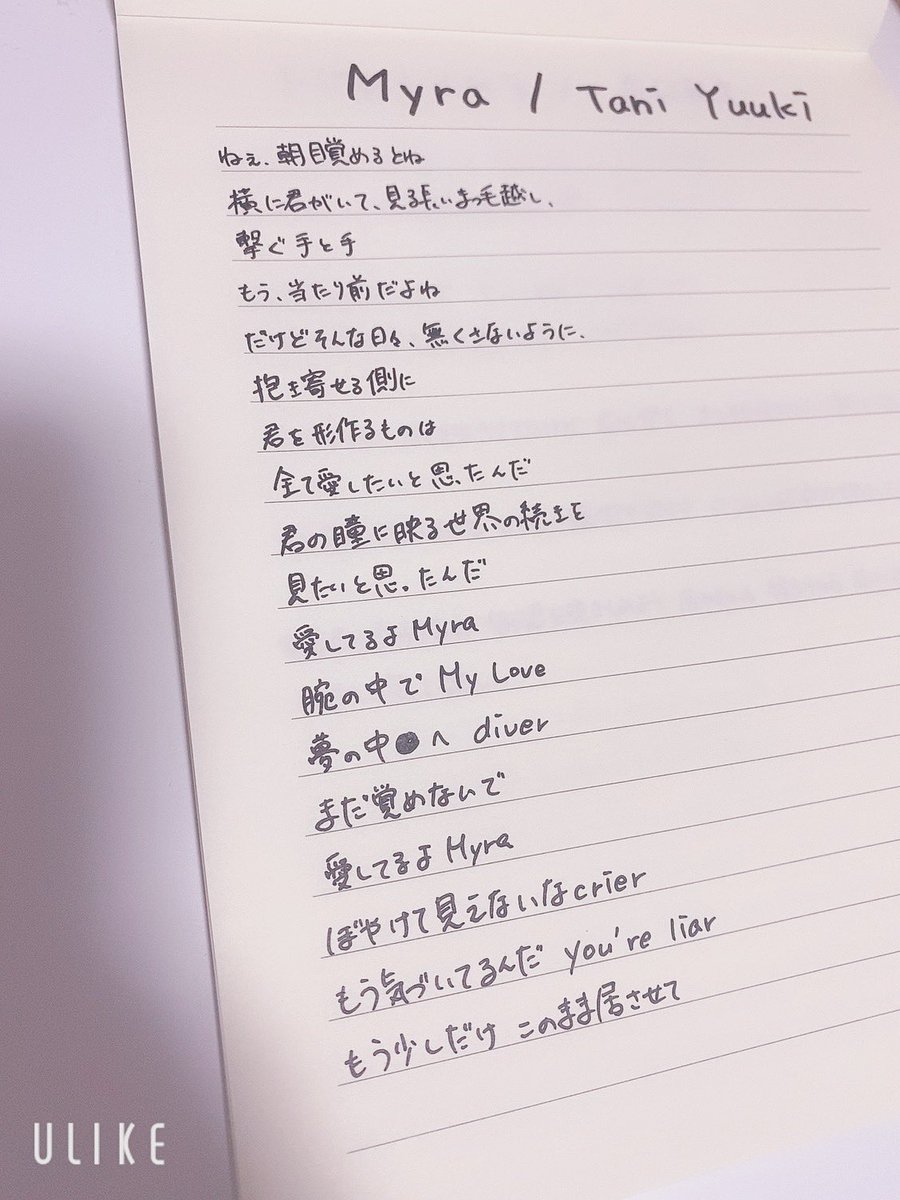 Myra / Tani Yuuki
ねぇ、朝目覚めるとね
横に君がいて、見る長いまつ毛越し、
繋ぐ手と手
もう、当たり前だよね
だけどそんな日々、無くさないように、
抱き寄せる側に
君を形作るものは
全て愛したいと思ったんだ
君の瞳に映る世界の続きを
見たいと思ったんだ
愛してるよ Myra
腕の中で My Love
夢の中へ diver
まだ覚めないで
愛してるよ Myra
ぼやけて見えないな crier
もう気づいてるんだ you're liar
もう少しだけ このまま居させて
ULIKE